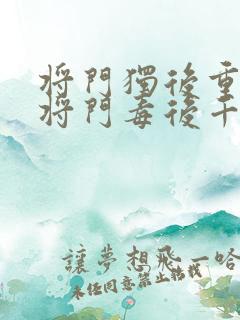 將門獨後重
將門毒後千
讓夢想飛一哈
未經同意禁止轉載